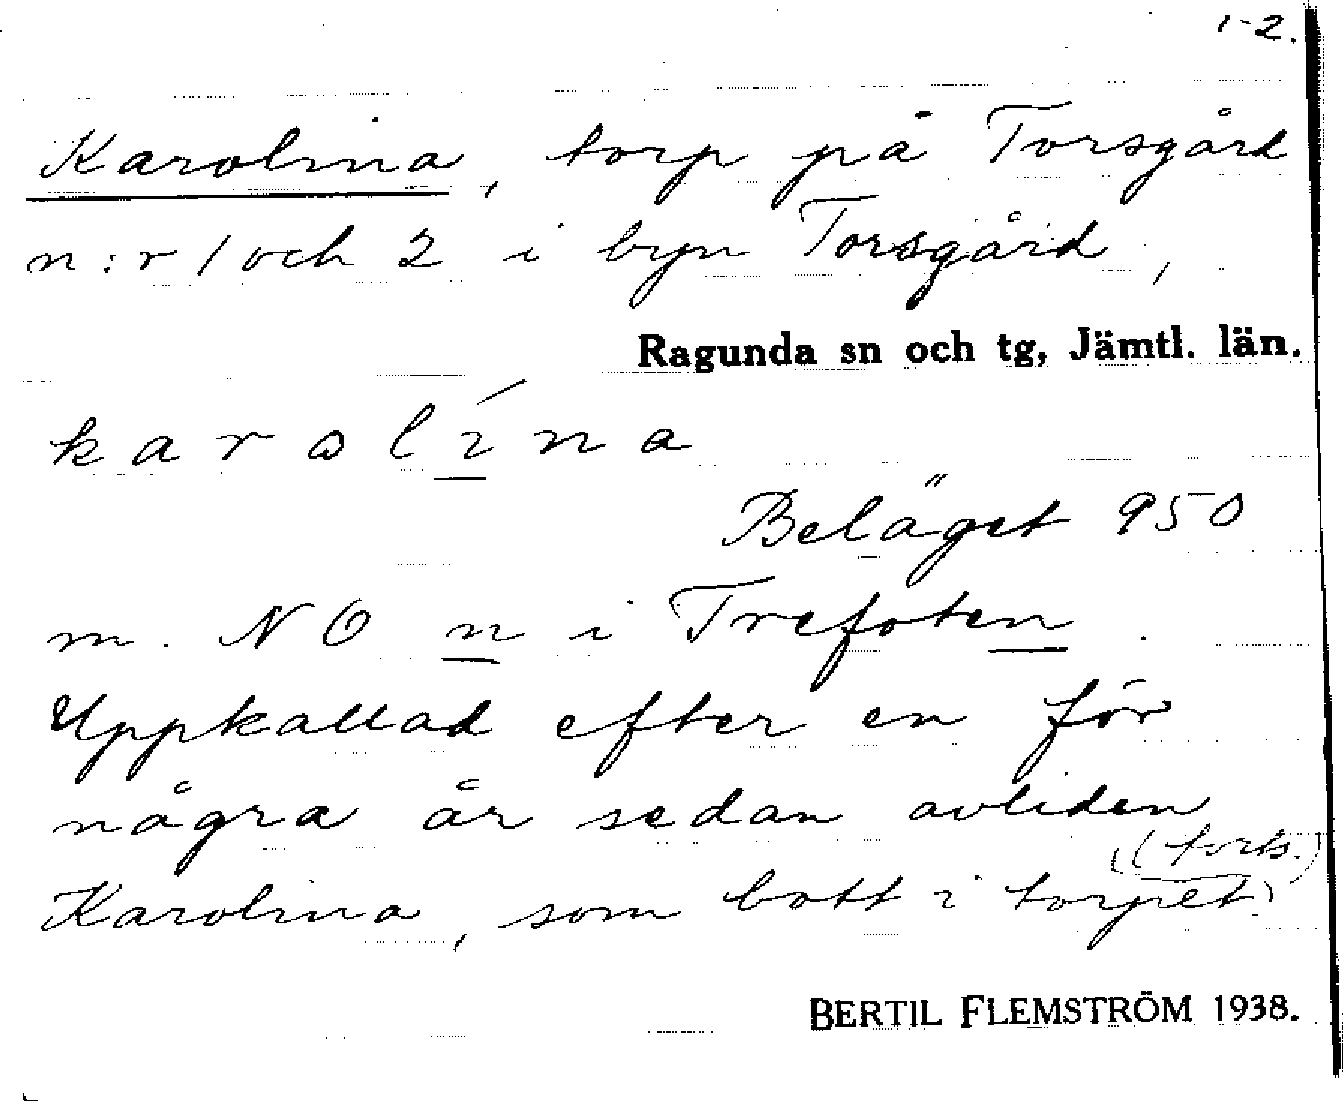 1-2.
Karolina, torp på Torsgård
n:r 1 och 2 i byn Torsgård,
Ragunda sn och tg, Jämtl. län.
karolína
Beläget 950
m. NO n i Trefoten.
Uppkallad efter en för
några år sedan avliden
(forts.)
Karolina, som bott i torpet.
BERTIL FLEMSTRÖM 1938.